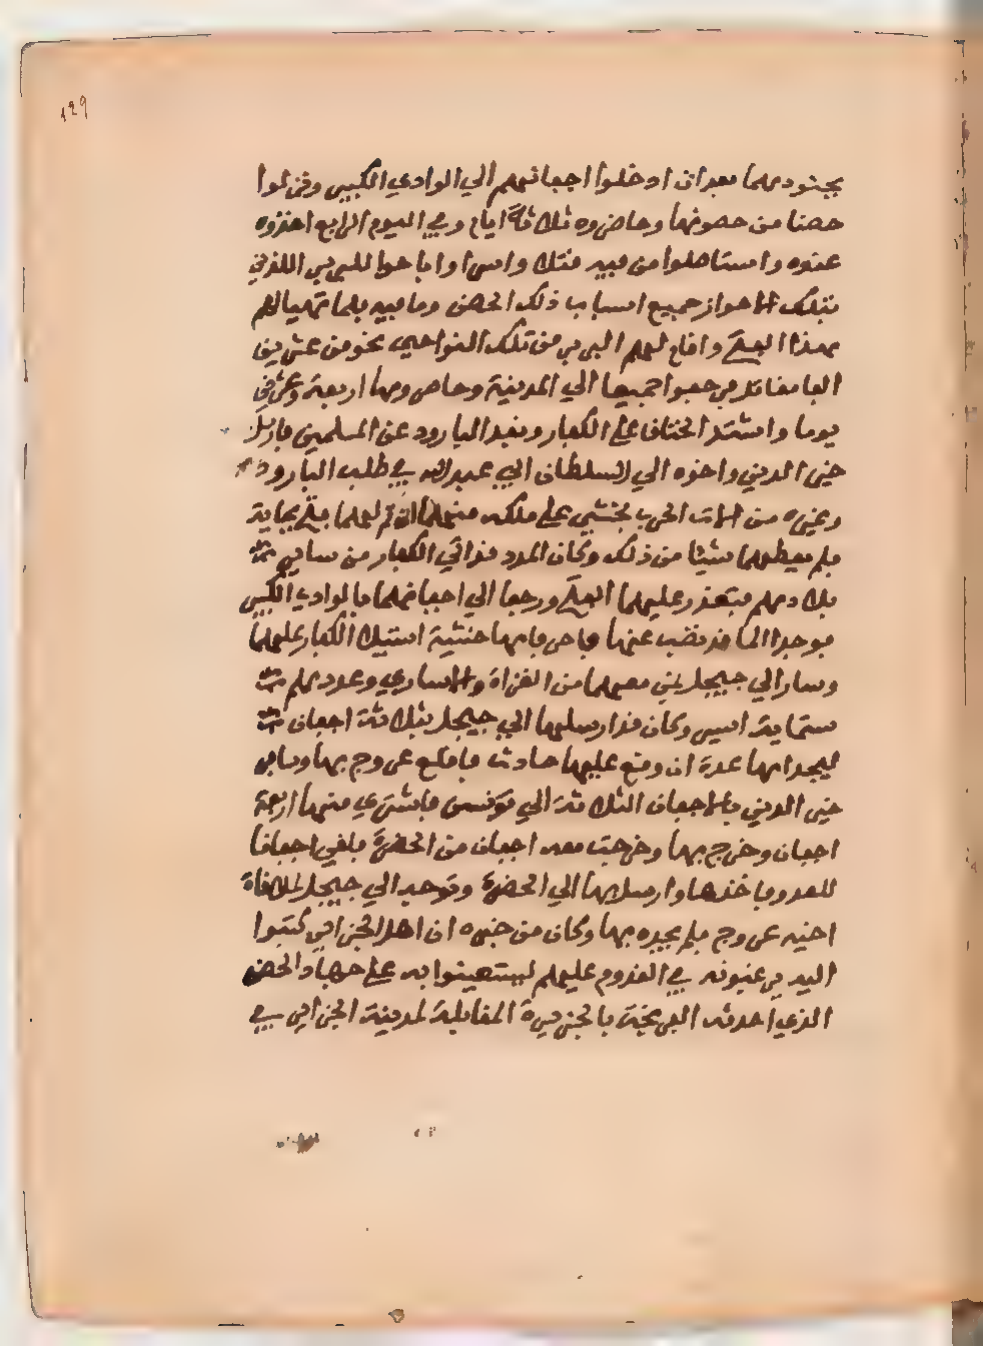 ١٢٩
بجنودهما بعد ان ادخلوا اجفانهم الي الوادي الكبير وقد نزلوا
حصنا من حصونها وحاصروه ثلاثة ايام وفي اليوم الرابع اخذوه
عنوة واستاصلوا من فيه قتلا واسرا واباحوا للبربر الذين
بتلك الاحواز جميع اسباب ذلك الحصن وما فيه فلما تهيا لهم
هذا الفتح واقام لهم البربر من تلك النواحي نحو من عشرين
الفا مقاتل فرجعوا جميعا الي المدينة وحاصروها اربعة وعشرين
يوما واشتد الخناق على الكفار ونفد البارود عن المسلمين فارسل
خير الدين واخوه الي السلطان ابي عبد الله في طلب البارود
وغيره من الات الحرب فخشي على ملكه منهما ان تم لهما فتح بجاية
فلم يعطهما شيئا من ذلك وكان المدد قد اتي الكفار من ساير
بلادهم فتعذر عليهما الفتح ورجعا الي اجفانهما بالوادي الكبير
فوجدا الما قد نضب عنها فاحرقاها خشية استيلا الكفار عليها
وسارا الي جيجل بمن معهما من الغزاة والاساري وعددهم
ستماية اسير وكان قد ارسلهما الي جيجل بثلاثة اجفان
ليجداها عدة ان وقع عليهما حادث فاقلع عروج بها وسافر
خير الدين بالاجفان الثلاثة الي تونس فاشتري منها اربعة
اجفان وخرج بها وخرجت معه اجفان من الحضرة فلقي اجفانا
للعدو فاخذها وارسل بها الي الحضرة وتوجه الي جيجل لملاقاة
اخيه عروج فلم يجده بها وكان من خبره ان اهل الجزائر كتبوا
اليه يرغبونه في القدوم عليهم ليستعينوا به على جهاد الحصن
الذي احدثه الفرنجة بالجزيرة المقابلة لمدينة الجزائر في